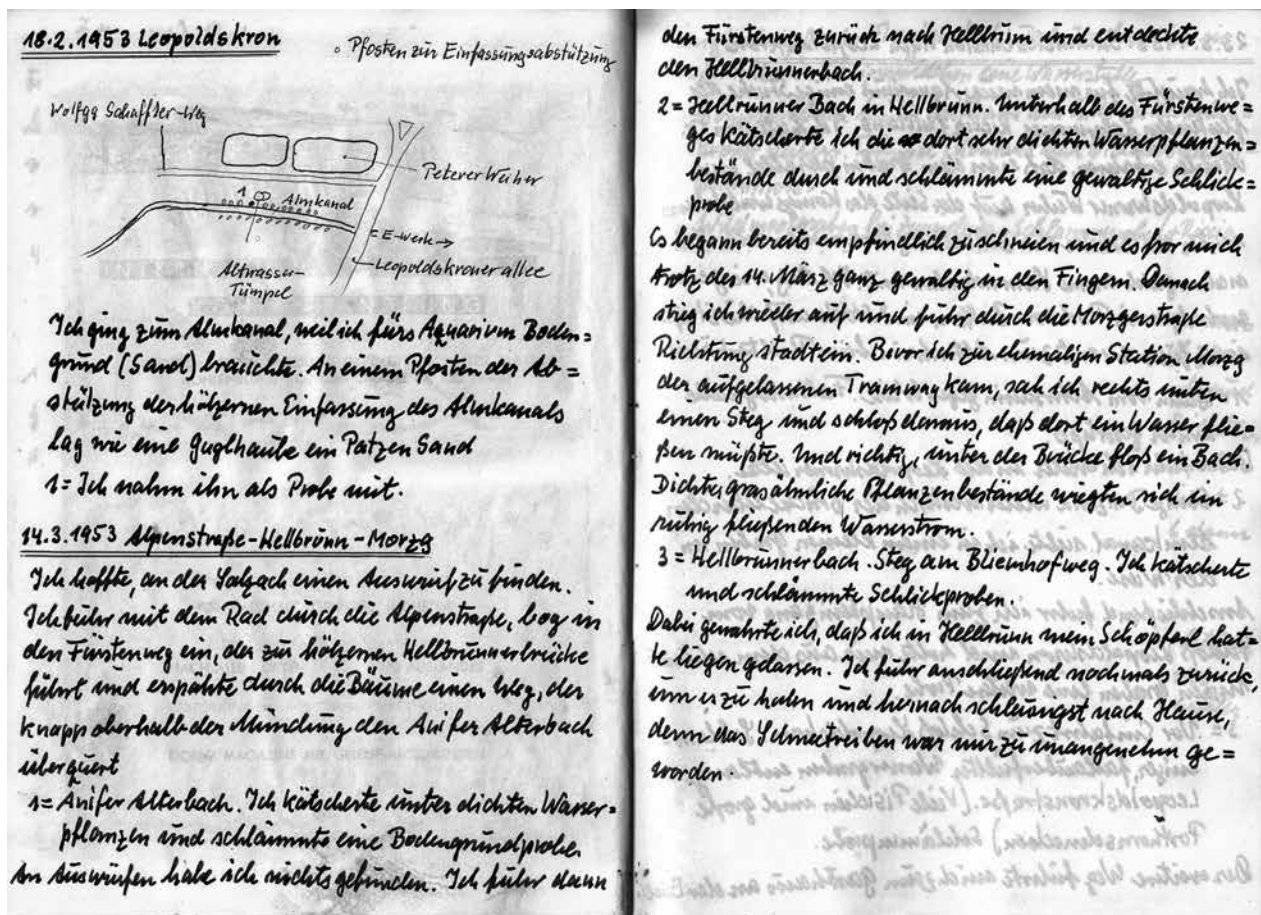 18.2.1953 Leopoldskron
° Pfosten zur Einfassungsabstützung
Wolfgg Schaffler-Weg
Peterer Weiher
1 Almkanal
= E-Werk →
Leopoldskroner allee
Altwasser-
Tümpel
Ich ging zum Almkanal, weil ich fürs Aquarium Boden=
grund (Sand) brauchte. An einem Pfosten der Ab=
stützung der hölzernen Einfassung des Almkanals
lag wie eine Guglhaube ein Patzen Sand
1= Ich nahm ihn als Probe mit.
14.3.1953 Alpenstraße-Hellbrunn-Morzg
Ich hoffte, an der Salzach einen Auswurf zu finden.
Ich fuhr mit dem Rad durch die Alpenstraße, bog in
den Fürstenweg ein, der zur hölzernen Hellbrunnerbrücke
führt und erspähte durch die Bäume einen Weg, der
knapp oberhalb der Mündung den Anifer Alterbach
überquert
1= Anifer Alterbach. Ich kätscherte unter dichten Wasser=
pflanzen und schlämmte eine Bodengrundprobe.
An Auswürfen habe ich nichts gefunden. Ich fuhr dann
den Fürstenweg zurück nach Hellbrunn und entdeckte
den Hellbrunnerbach.
2= Hellbrunner Bach in Hellbrunn. Unterhalb des Fürstenwe=
ges kätscherte ich die dort sehr dichten Wasserpflanzen=
bestände durch und schlämmte eine gewaltige Schlick=
probe
Es begann bereits empfindlich zu schneien und es fror mich
trotz des 14. März ganz gewaltig in den Fingern. Danach
stieg ich wieder auf und fuhr durch die Morzgerstraße
Richtung stadtein. Bevor ich zur ehemaligen Station Morzg
der aufgelassenen Tramway kam, sah ich rechts unten
einen Steg und schloß daraus, daß dort ein Wasser flie=
ßen müßte. Und richtig, unter der Brücke floß ein Bach.
Dichte, grasähnliche Pflanzenbestände wiegten sich im
ruhig fließenden Wasserstrom.
3= Hellbrunnerbach. Steg am Blienhofweg. Ich kätscherte
und schlämmte Schlickproben.
Dabei gewahrte ich, daß ich in Hellbrunn mein Schöpferl hat=
te liegen gelassen. Ich fuhr anschließend nochmals zurück,
um es zu holen und hernach schleunigst nach Hause,
denn das Schneetreiben war mir zu unangenehm ge=
worden.